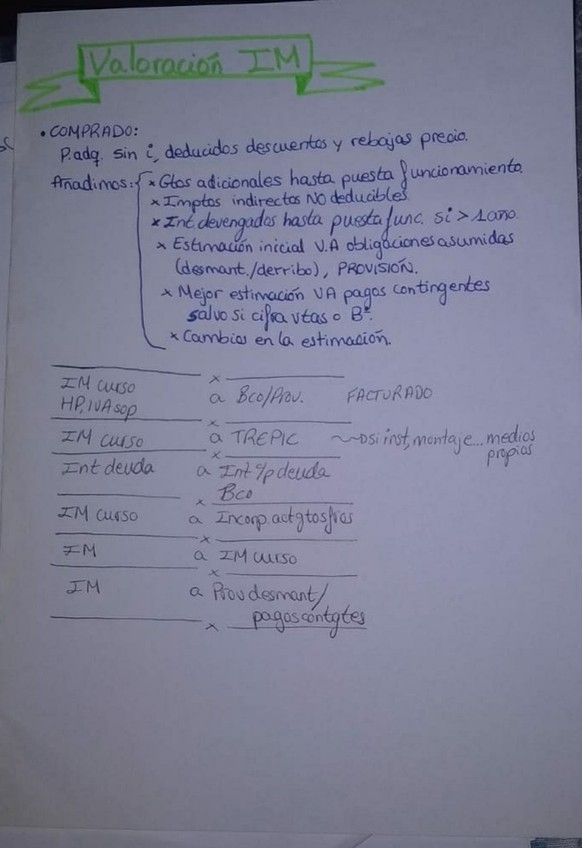 Valoración IM
• COMPRADO:
P.adq. sin i, deducidos descuentos y rebajas precio.
Añadimos: x Gtos adicionales hasta puesta funcionamiento.
x Imptos indirectos NO deducibles.
x Int. devengados hasta puesta func. si > 1 año.
x Estimación inicial V.A obligaciones asumidas
(desmant./derribo), PROVISIÓN.
x Mejor estimación VA pagos contingentes
salvo si cifra vtas o Bº.
x Cambios en la estimación.
x
IM curso
HP, IVA sop a Bco/Prov. FACTURADO
x
IM curso a TREPIC ~~> si inst, montaje... medios
propios
x
Int deuda a Int %p deuda
Bco
x
IM curso a Incorp. act gtos fros
x
IM a IM curso
x
IM a Prov desmant/
pagos contgtes
x